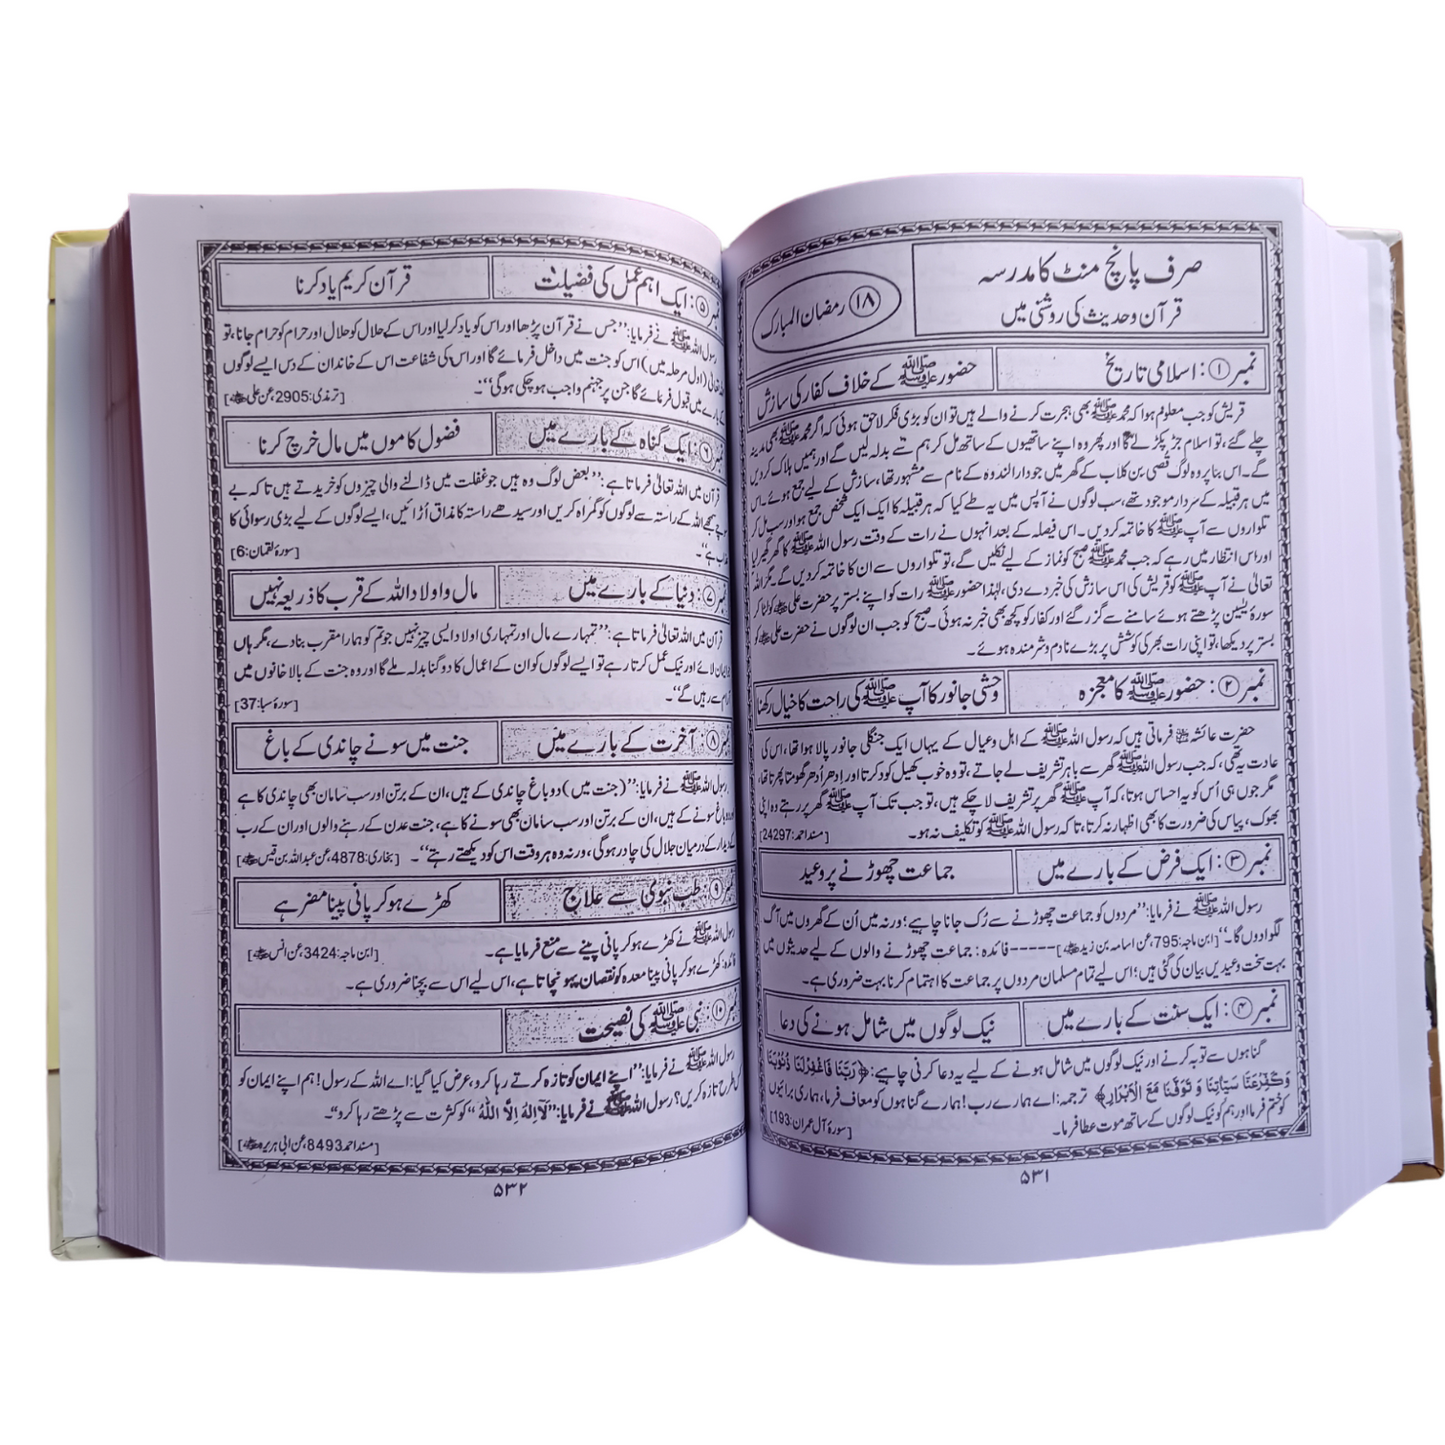 صرف پانچ منٹ کا مدرسہ
قرآن و حدیث کی روشنی میں
۱۸ رمضان المبارک
نمبر ①: اسلامی تاریخ
حضور ﷺ کے خلاف کفار کی سازش
قریش کو جب معلوم ہوا کہ محمد ﷺ بھی ہجرت کرنے والے ہیں تو ان کو بڑی فکر لاحق ہوئی کہ اگر محمد ﷺ بھی مدینہ
چلے گئے، تو اسلام جڑ پکڑ لے گا اور پھر وہ اپنے ساتھیوں کے ساتھ مل کر ہم سے بدلہ لیں گے اور ہمیں ہلاک کر دیں
گے۔ اس بنا پر وہ لوگ قصی بن کلاب کے گھر میں جو دار الندوہ کے نام سے مشہور تھا، سازش کے لیے جمع ہوئے۔ اس
میں ہر قبیلہ کے سردار موجود تھے، سب لوگوں نے آپس میں یہ طے کیا کہ ہر قبیلہ کا ایک ایک شخص جمع ہو اور سب مل کر
تلواروں سے آپ ﷺ کا خاتمہ کر دیں۔ اس فیصلہ کے بعد انہوں نے رات کے وقت رسول اللہ ﷺ کا گھر گھیر لیا
اور اس انتظار میں رہے کہ جب محمد ﷺ صبح کو نماز کے لیے نکلیں گے، تو تلواروں سے ان کا خاتمہ کر دیں گے۔ مگر اللہ
تعالیٰ نے آپ ﷺ کو قریش کی اس سازش کی خبر دے دی، لہٰذا حضور ﷺ رات کو اپنے بستر پر حضرت علی ؓ کو لٹا کر
سورۂ یٰسین پڑھتے ہوئے سامنے سے گزر گئے اور کفار کو کچھ بھی خبر نہ ہوئی۔ صبح کو جب ان لوگوں نے حضرت علی ؓ کو
بستر پر دیکھا، تو اپنی رات بھر کی کوشش پر بڑے نادم و شرمندہ ہوئے۔
نمبر ②: حضور ﷺ کا معجزہ
وحشی جانور کا آپ ﷺ کی راحت کا خیال رکھنا
حضرت عائشہ ؓ فرماتی ہیں کہ رسول اللہ ﷺ کے اہل و عیال کے یہاں ایک جنگلی جانور پالا ہوا تھا، اس کی
عادت یہ تھی، کہ جب رسول اللہ ﷺ گھر سے باہر تشریف لے جاتے، تو وہ خوب کھیل کود کرتا اور اِدھر اُدھر گھومتا پھرتا تھا،
مگر جوں ہی اُس کو یہ احساس ہوتا، کہ آپ ﷺ گھر پر تشریف لا چکے ہیں، تو جب تک آپ ﷺ گھر پر رہتے وہ اپنی
بھوک، پیاس کی ضرورت کا بھی اظہار نہ کرتا، تاکہ رسول اللہ ﷺ کو تکلیف نہ ہو۔ [مسند احمد: 24297]
نمبر ③: ایک فرض کے بارے میں
جماعت چھوڑنے پر وعید
رسول اللہ ﷺ نے فرمایا: ’’مردوں کو جماعت چھوڑنے سے رُک جانا چاہیے؛ ورنہ میں اُن کے گھروں میں آگ
لگوا دوں گا۔‘‘ [ابن ماجہ: 795، عن اسامہ بن زید ؓ] ----- فائدہ: جماعت چھوڑنے والوں کے لیے حدیثوں میں
بہت سخت وعیدیں بیان کی گئی ہیں؛ اس لیے تمام مسلمان مردوں پر جماعت کا اہتمام کرنا بہت ضروری ہے۔
نمبر ④: ایک سنت کے بارے میں
نیک لوگوں میں شامل ہونے کی دعا
گناہوں سے توبہ کرنے اور نیک لوگوں میں شامل ہونے کے لیے یہ دعا کرنی چاہیے: ﴿رَبَّنَا فَاغْفِرْلَنَا ذُنُوْبَنَا
وَكَفِّرْعَنَّا سَيِّاٰتِنَا وَ تَوَفَّنَا مَعَ الْاَبْرَارِ﴾ ترجمہ: اے ہمارے رب! ہمارے گناہوں کو معاف فرما، ہماری برائیوں
کو ختم فرما اور ہم کو نیک لوگوں کے ساتھ موت عطا فرما۔ [سورۂ آل عمران: 193]
۵۳۱
نمبر ⑤: ایک اہم عمل کی فضیلت
قرآن کریم یاد کرنا
رسول اللہ ﷺ نے فرمایا: ’’جس نے قرآن پڑھا اور اس کو یاد کر لیا اور اس کے حلال کو حلال اور حرام کو حرام جانا، تو
تعالیٰ (اول مرحلہ میں) اس کو جنت میں داخل فرمائے گا اور اس کی شفاعت اس کے خاندان کے دس ایسے لوگوں
کے بارے میں قبول فرمائے گا جن پر جہنم واجب ہو چکی ہوگی‘‘۔ [ترمذی: 2905، عن علی ؓ]
نمبر ⑥: ایک گناہ کے بارے میں
فضول کاموں میں مال خرچ کرنا
قرآن میں اللہ تعالیٰ فرماتا ہے: ’’بعض لوگ وہ ہیں جو غفلت میں ڈالنے والی چیزوں کو خریدتے ہیں تاکہ بے
سمجھے اللہ کے راستہ سے لوگوں کو گمراہ کریں اور سیدھے راستہ کا مذاق اڑائیں، ایسے لوگوں کے لیے بڑی رسوائی کا
ہے‘‘۔ [سورۂ لقمان: 6]
نمبر ⑦: دنیا کے بارے میں
مال و اولاد اللہ کے قرب کا ذریعہ نہیں
قرآن میں اللہ تعالیٰ فرماتا ہے: ’’تمہارے مال اور تمہاری اولاد ایسی چیز نہیں جو تم کو ہمارا مقرب بنا دے، مگر ہاں
ایمان لائے اور نیک عمل کرتا رہے تو ایسے لوگوں کو ان کے اعمال کا دوگنا بدلہ ملے گا اور وہ جنت کے بالا خانوں میں
آرام سے رہیں گے‘‘۔ [سورۂ سبا: 37]
نمبر ⑧: آخرت کے بارے میں
جنت میں سونے چاندی کے باغ
رسول اللہ ﷺ نے فرمایا: ’’(جنت میں) دو باغ چاندی کے ہیں، ان کے برتن اور سب سامان بھی چاندی کا ہے
باغ سونے کے ہیں، ان کے برتن اور سب سامان بھی سونے کا ہے، جنت عدن کے رہنے والوں اور ان کے رب
کے دیدار کے درمیان جلال کی چادر ہوگی، ورنہ وہ ہر وقت اس کو دیکھتے رہتے‘‘۔ [بخاری: 4878، عن عبد اللہ بن قیس ؓ]
نمبر ⑨: طب نبوی سے علاج
کھڑے ہو کر پانی پینا مضر ہے
رسول اللہ ﷺ نے کھڑے ہو کر پانی پینے سے منع فرمایا ہے۔ [ابن ماجہ: 3424، عن انس ؓ]
فائدہ: کھڑے ہو کر پانی پینا معدہ کو نقصان پہونچاتا ہے، اس لیے اس سے بچنا ضروری ہے۔
نمبر ⑩: نبی ﷺ کی نصیحت
رسول اللہ ﷺ نے فرمایا: ’’اپنے ایمان کو تازہ کرتے رہا کرو، عرض کیا گیا: اے اللہ کے رسول! ہم اپنے ایمان کو
کس طرح تازہ کریں؟ رسول اللہ ﷺ نے فرمایا: ’’لَآ اِلٰهَ اِلَّا اللّٰهُ‘‘ کو کثرت سے پڑھتے رہا کرو‘‘۔
[مسند احمد: 8493، عن ابی ہریرہ ؓ]
۵۳۲